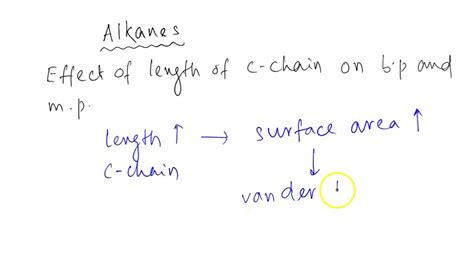 Alkanes
Effect of length of C-chain on b.p and
m.p.
length ↑ → surface area ↑
C-chain
↓
vander